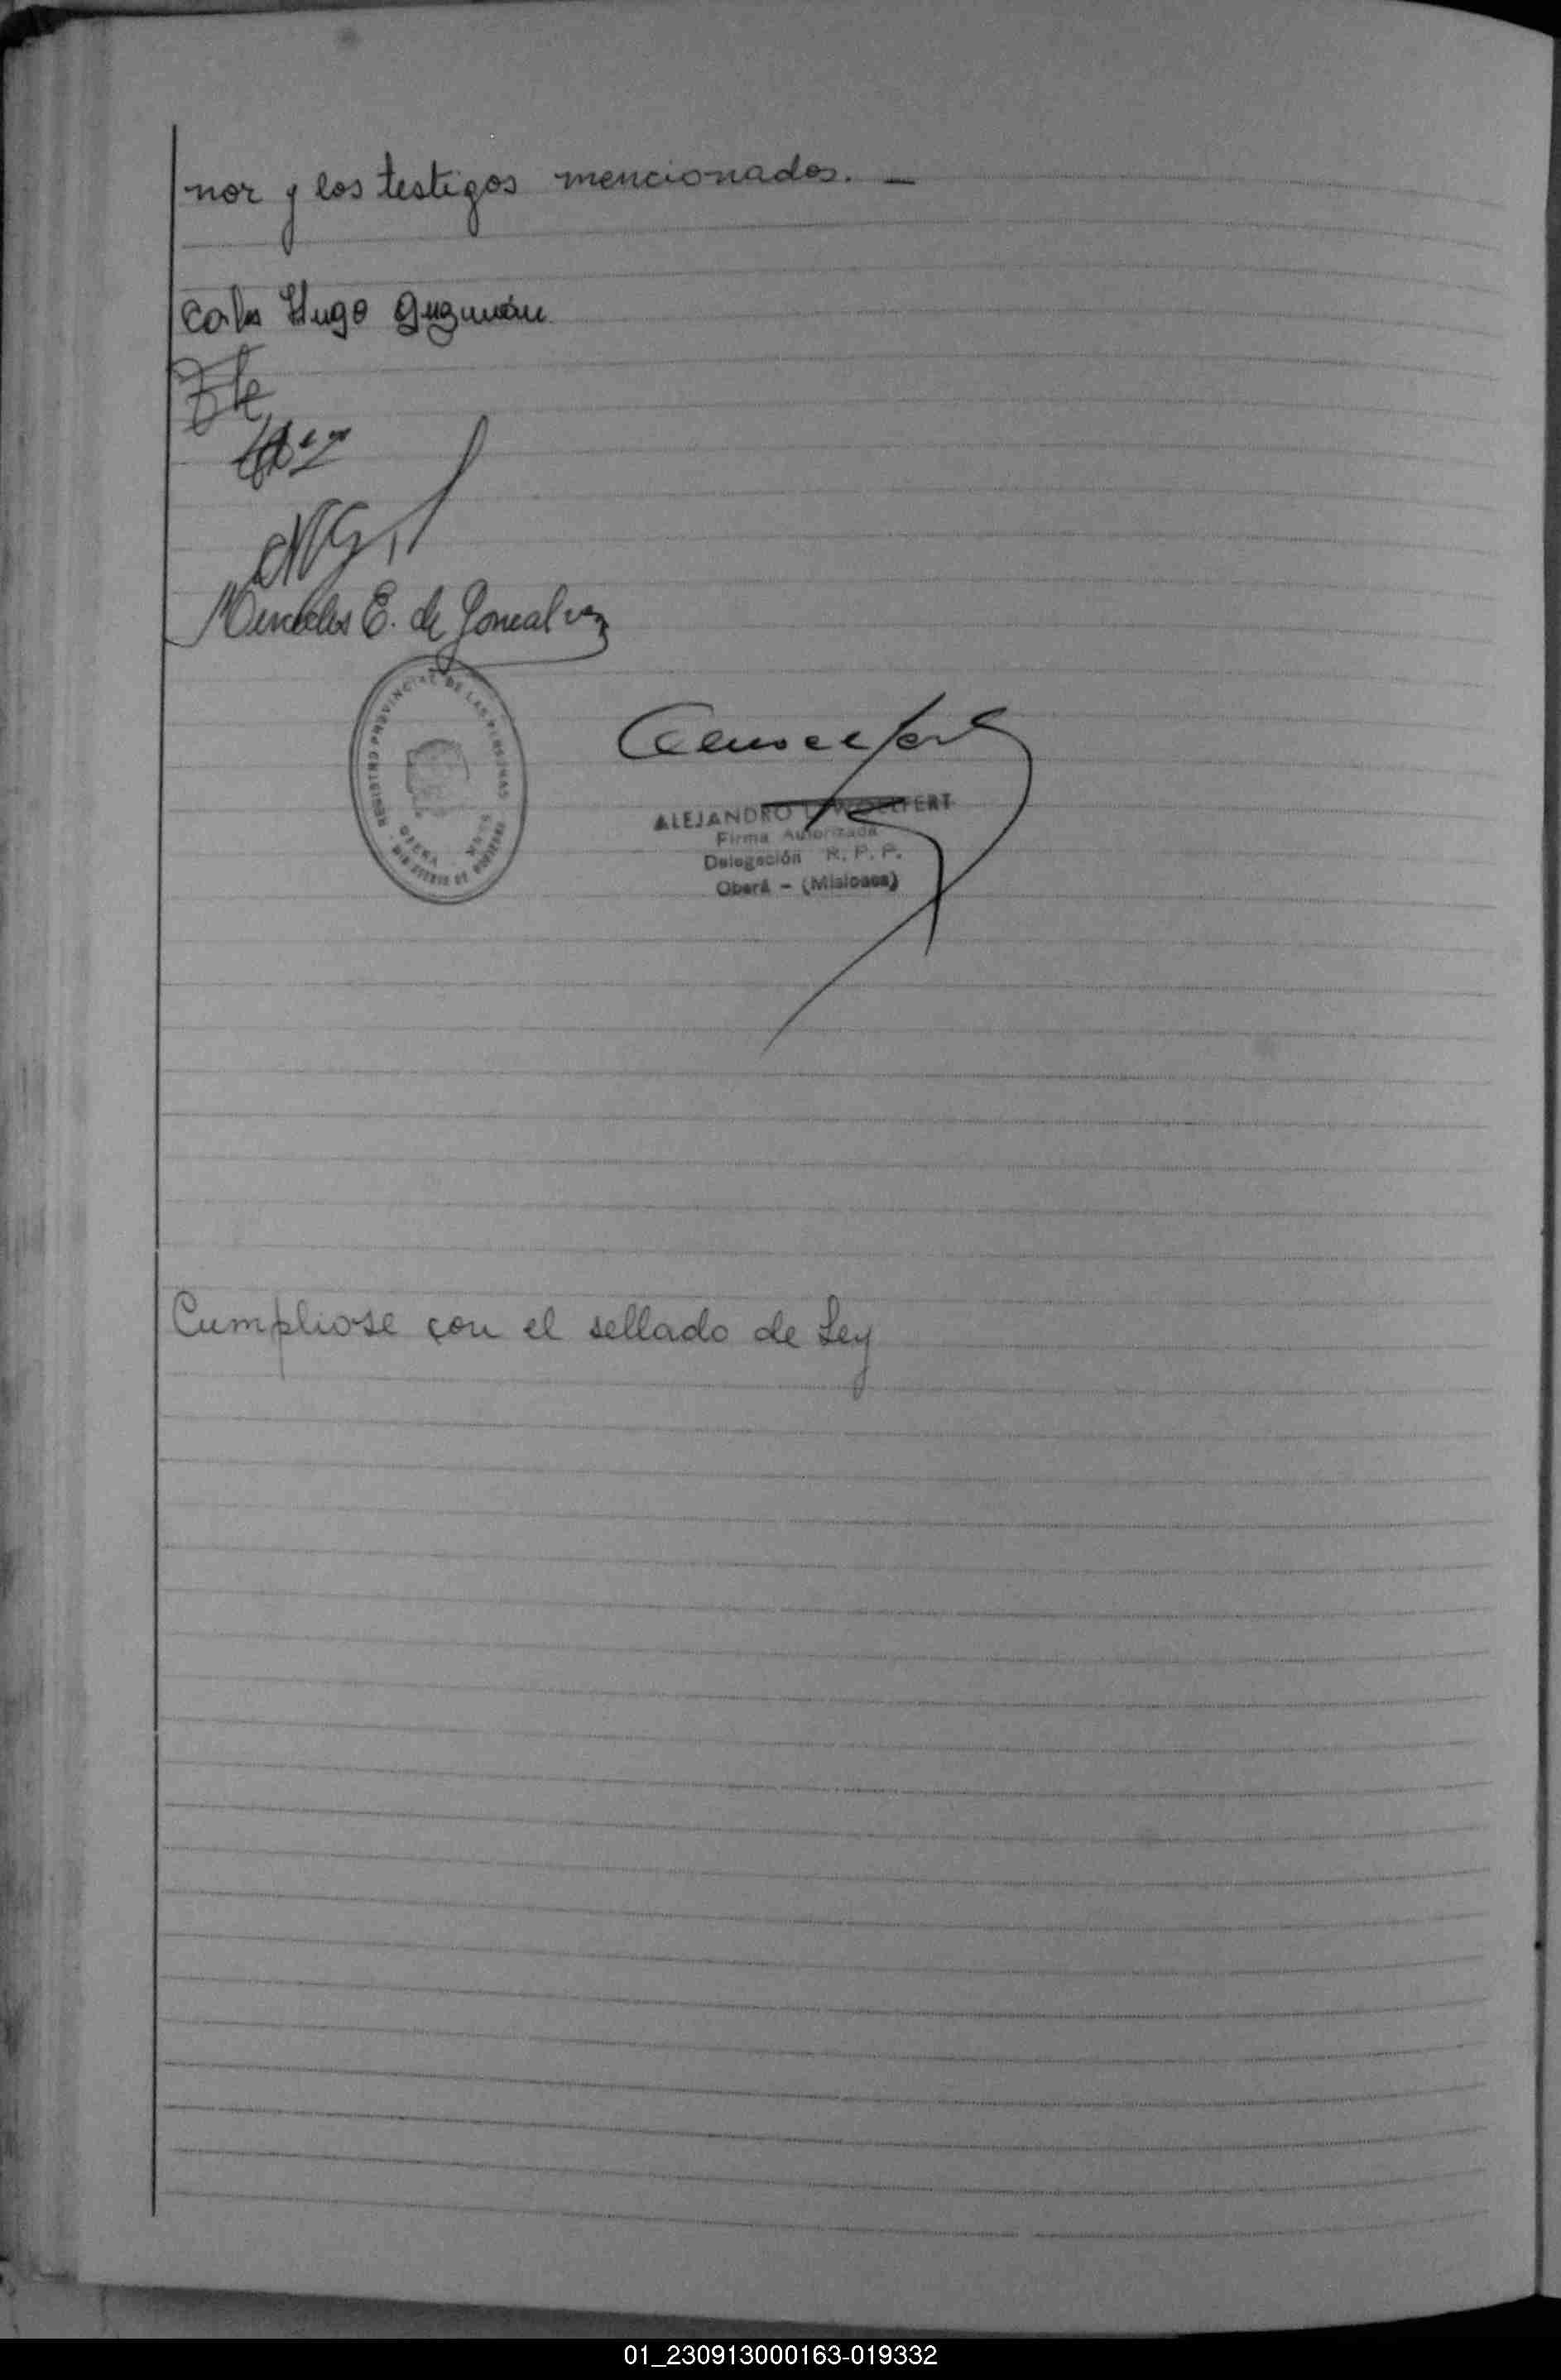 nor y los testigos mencionados. —
Carlos Hugo Guzmán
Mercedes E. de Goncalvez
REGISTRO PROVINCIAL DE LAS PERSONAS
OBERA
MINISTERIO DE GOBIERNO
ALEJANDRO WOELFERT
Firma Autorizada
Delegación R. P. P.
Oberá - (Misiones)
Cumpliose con el sellado de Ley
01_230913000163-019332